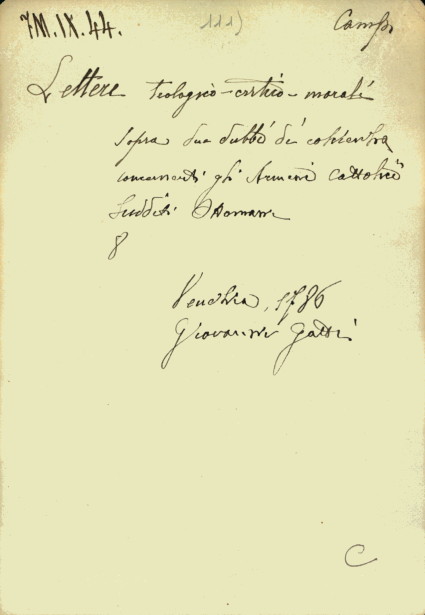 7M.IX.44. 111) Camps
Lettere teologico-critico-morali
sopra due dubbi di coscienza
concernenti gli Armeni Cattolici
sudditi Ottomani
8
Venezia, 1786
Giovanni Gatti
C